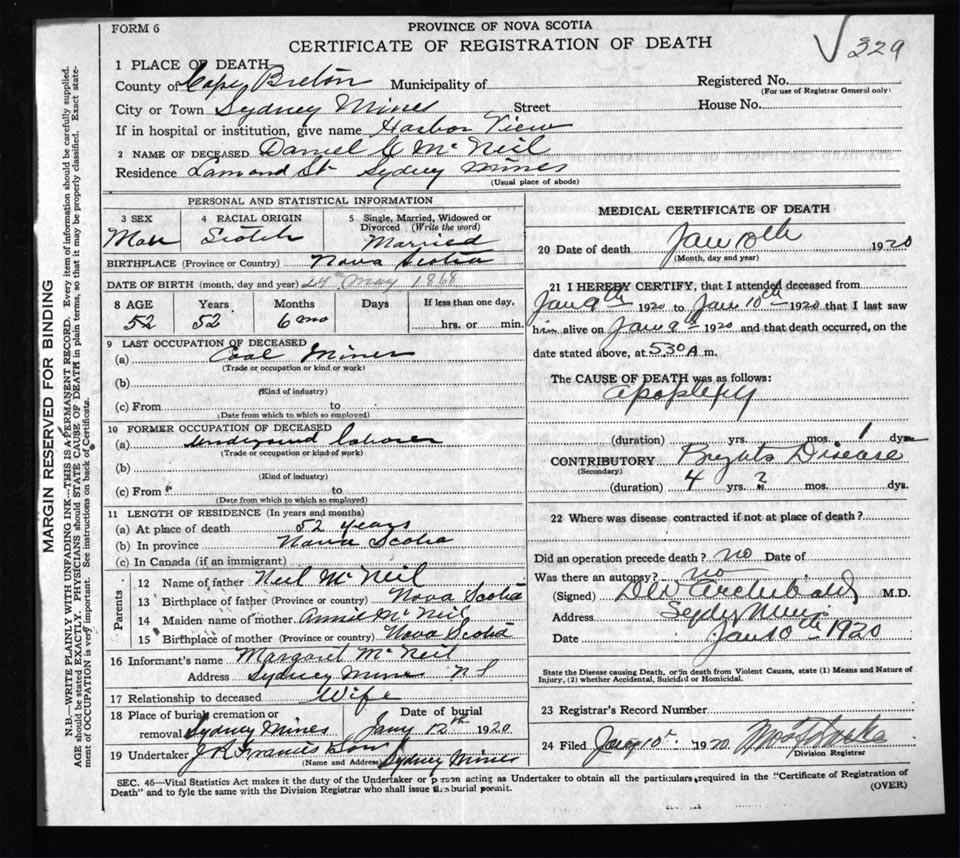 FORM 6
PROVINCE OF NOVA SCOTIA
CERTIFICATE OF REGISTRATION OF DEATH
329
MARGIN RESERVED FOR BINDING
N.B.—WRITE PLAINLY WITH UNFADING INK—THIS IS A PERMANENT RECORD. Every item of information should be carefully supplied.
AGE should be stated EXACTLY. PHYSICIANS should STATE CAUSE OF DEATH in plain terms, so that it may be properly classified. Exact state-
ment of OCCUPATION is very important. See instructions on back of Certificate.
1 PLACE OF DEATH
County of Cape Breton Municipality of
Registered No.
(For use of Registrar General only)
City or Town Sydney Mines Street House No.
If in hospital or institution, give name Harbor View
2 NAME OF DECEASED Daniel McNeil
Residence Lamond St Sydney Mines
(Usual place of abode)
PERSONAL AND STATISTICAL INFORMATION
3 SEX 4 RACIAL ORIGIN 5 Single, Married, Widowed or Divorced (Write the word)
Scotch Married
BIRTHPLACE (Province or Country) Nova Scotia
DATE OF BIRTH (month, day and year) 24th May 1868
8 AGE Years Months Days If less than one day,
52 52 6 mo hrs. or min.
9 LAST OCCUPATION OF DECEASED
(a) Coal Miner
(Trade or occupation or kind or work)
(b)
(Kind of industry)
(c) From to
(Date from which to which so employed)
10 FORMER OCCUPATION OF DECEASED
(a) underground laborer
(Trade or occupation or kind of work)
(b)
(Kind of industry)
(c) From to
(Date from which to which so employed)
11 LENGTH OF RESIDENCE (In years and months)
(a) At place of death 52 years
(b) In province Nova Scotia
(c) In Canada (if an immigrant)
Parents
12 Name of father Neil McNeil
13 Birthplace of father (Province or country) Nova Scotia
14 Maiden name of mother Annie McNeil
15 Birthplace of mother (Province or country) Nova Scotia
16 Informant's name Margaret McNeil
Address Sydney Mines N S
17 Relationship to deceased Wife
18 Place of burial, cremation or removal Sydney Mines Date of burial Jany 12th 1920
19 Undertaker J R Francis & Son Sydney Mines
(Name and Address)
MEDICAL CERTIFICATE OF DEATH
20 Date of death Jan 10th 1920
(Month, day and year)
21 I HEREBY CERTIFY, that I attended deceased from
Jan 9th 1920 to Jan 10th 1920 that I last saw
him alive on Jan 9th 1920 and that death occurred, on the
date stated above, at 5.30 A m.
The CAUSE OF DEATH was as follows:
apoplexy
(duration) yrs. mos. 1 dys.
CONTRIBUTORY Brights Disease
(Secondary)
(duration) 4 yrs. ? mos. dys.
22 Where was disease contracted if not at place of death?
Did an operation precede death? no Date of
Was there an autopsy? no
(Signed) Archibald M.D.
Address Sydney Mines
Date Jan 10th 1920
State the Disease causing Death, or in death from Violent Causes, state (1) Means and Nature of
Injury, (2) whether Accidental, Suicidal or Homicidal.
23 Registrar's Record Number
24 Filed Jany 10th 1920
Division Registrar
SEC. 46—Vital Statistics Act makes it the duty of the Undertaker or person acting as Undertaker to obtain all the particulars required in the "Certificate of Registration of
Death" and to fyle the same with the Division Registrar who shall issue the burial permit.
(OVER)